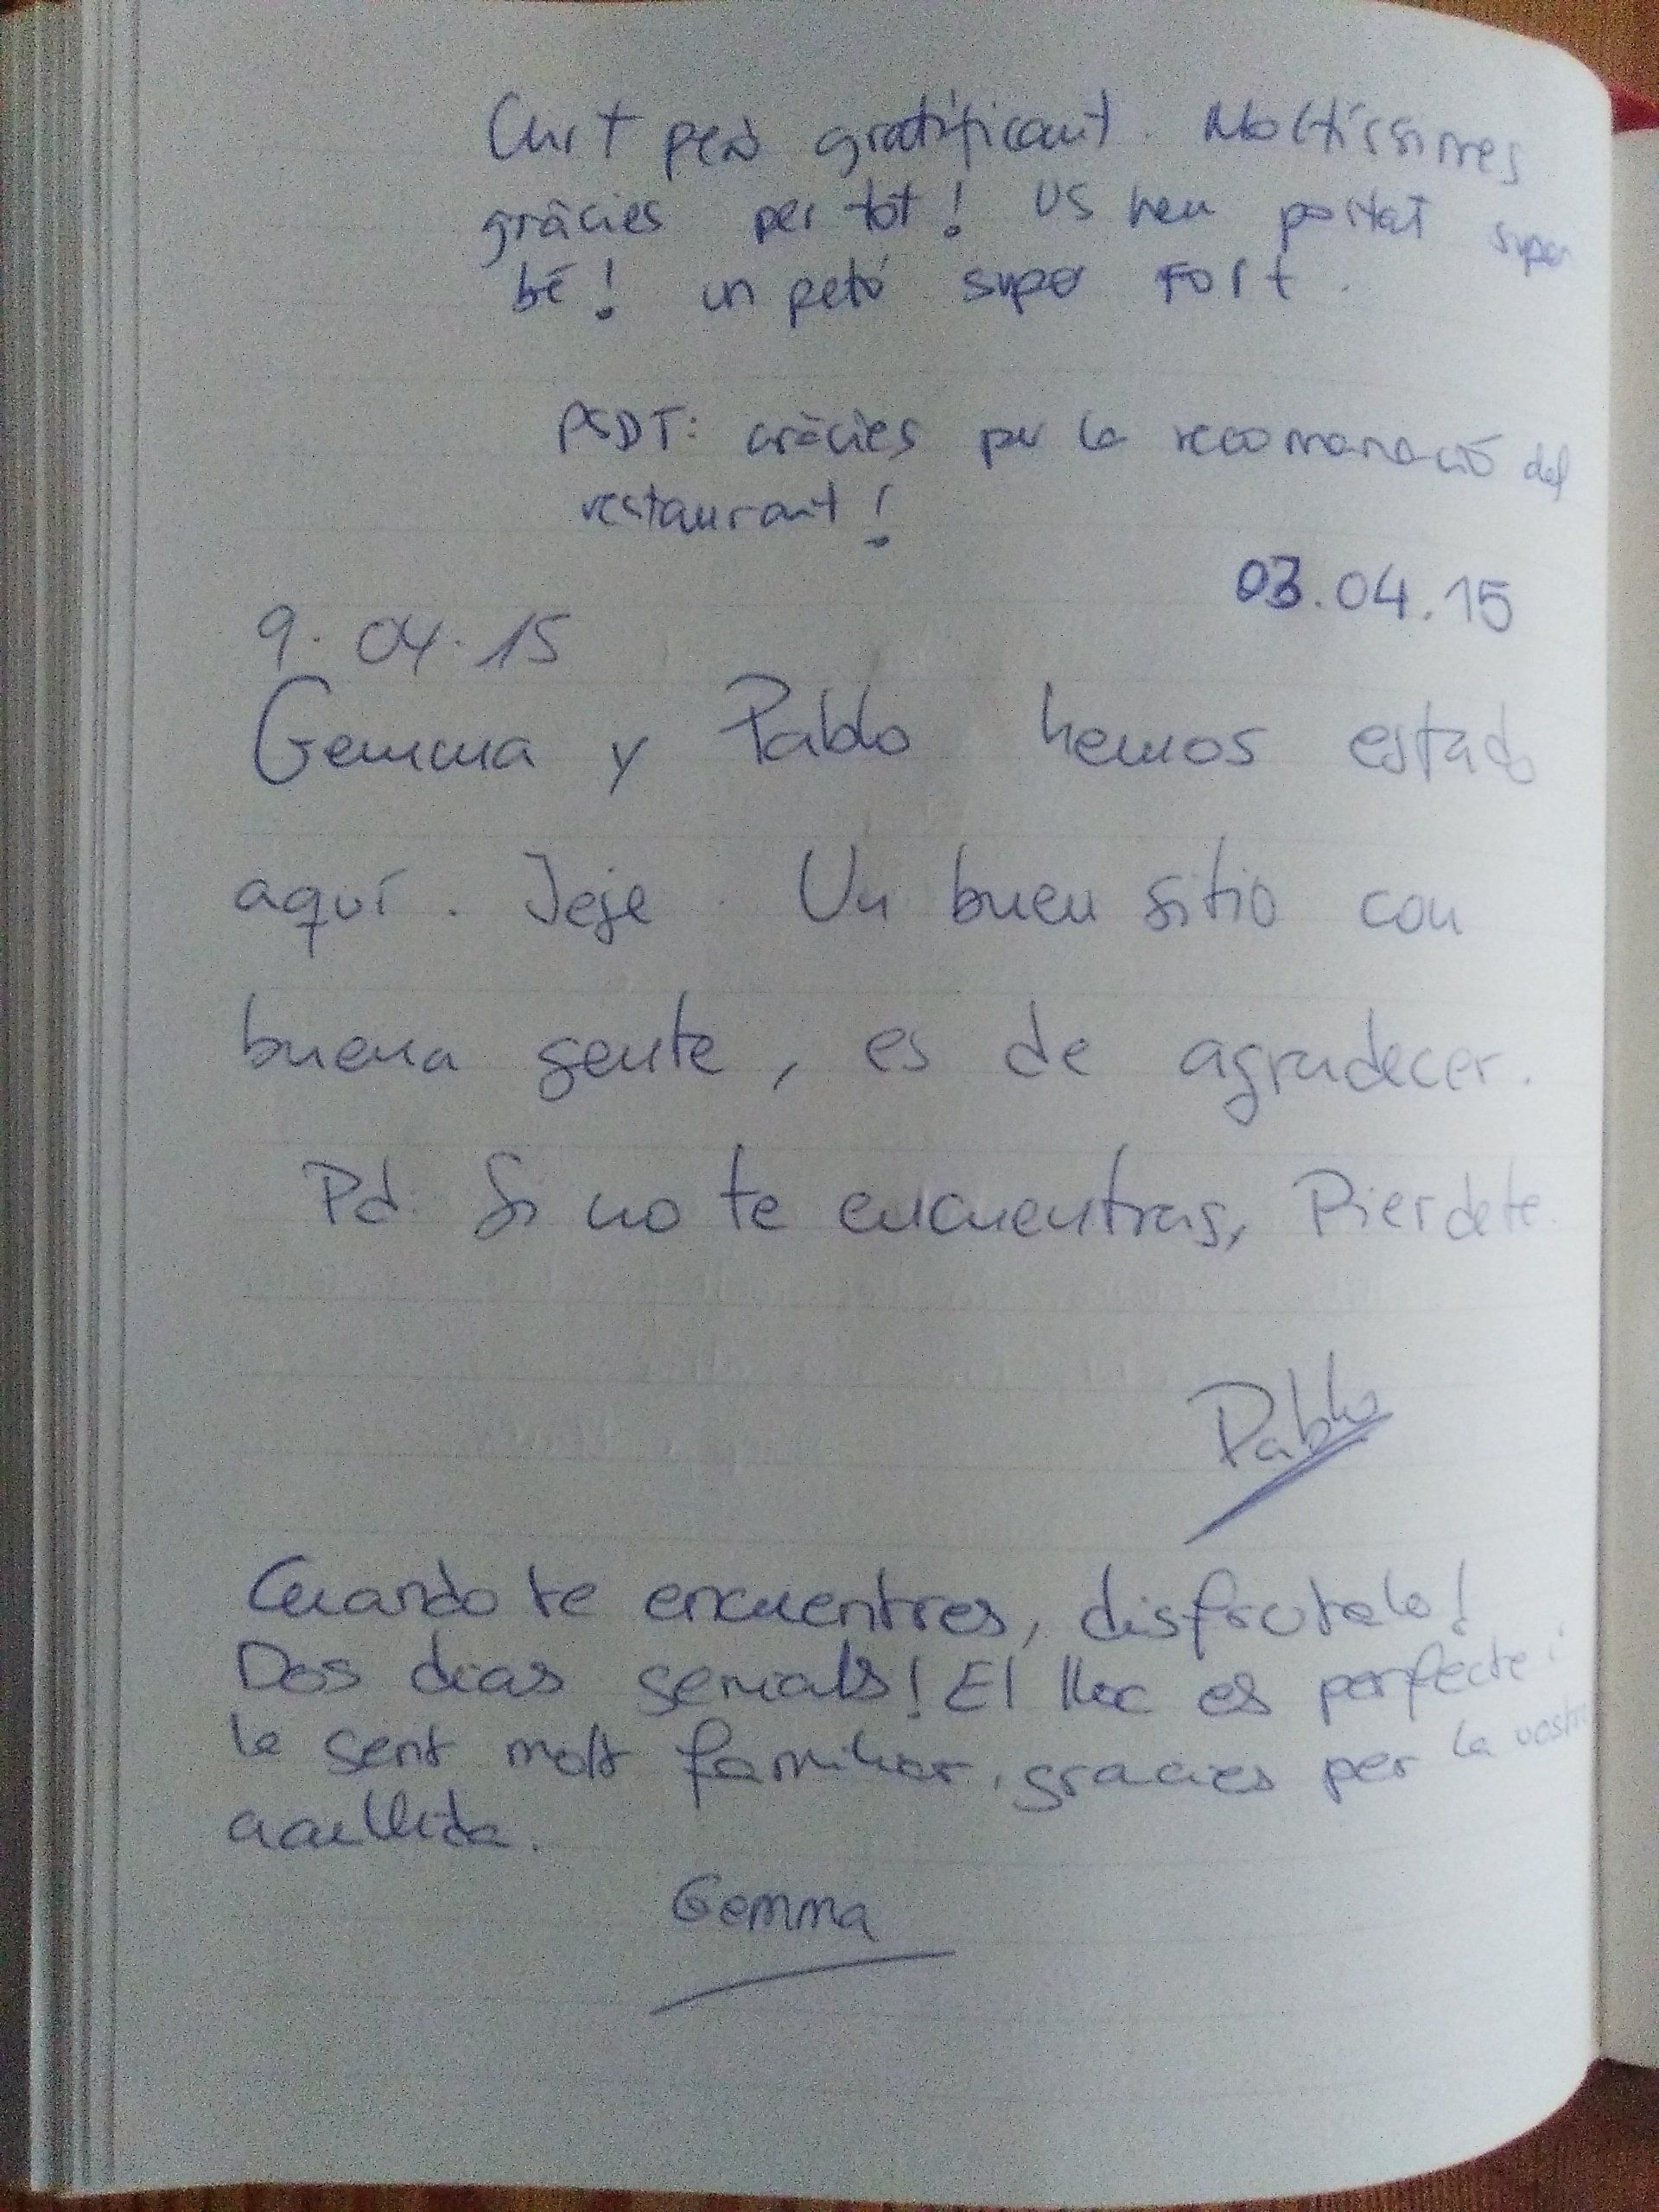 Curt però gratificant. Moltíssimes
gràcies per tot! US heu portat super
bé! un petó super FORT.
PSDT: Gràcies per la recomanació del
restaurant!
03.04.15
9.04.15
Gemma y Pablo hemos estado
aquí. Jeje. Un buen sitio con
buena gente, es de agradecer.
Pd. Si no te encuentras, Pierdete.
Pablo
Cuando te encuentres, disfrutalo!
Dos dias genials! El lloc es perfecte i
le sent molt familiar. gracies per la vostra
acullida.
Gemma